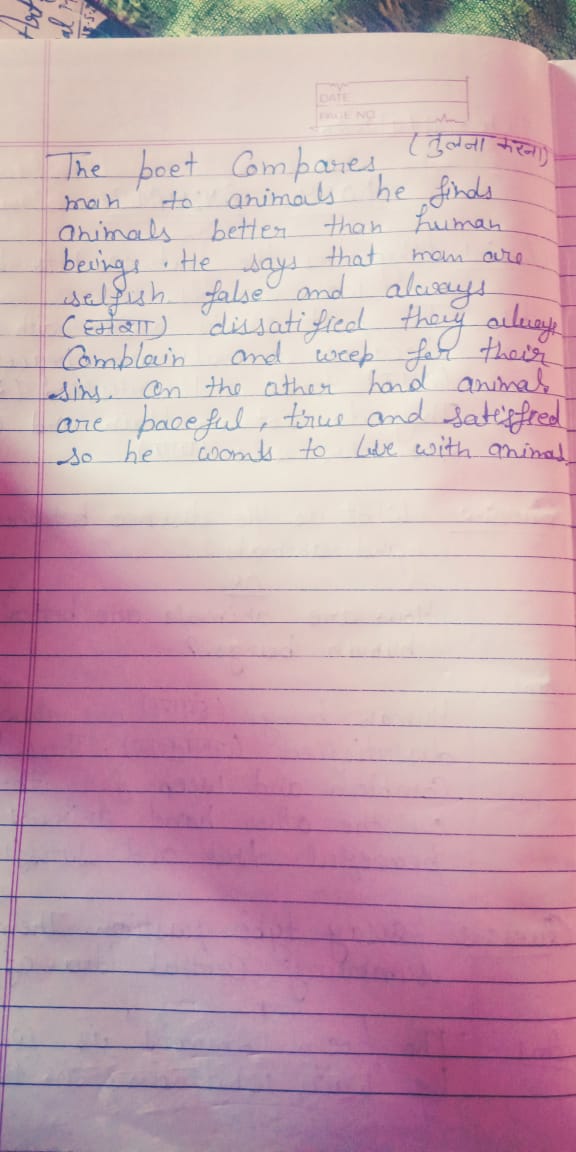 DATE
PAGE NO
(तुलना करना)
The poet Compares
man to animals he finds
animals better than human
beings. He says that man are
selfish false and always
(हमेशा) dissatified they always
Complain and weep for their
sins. On the other hand animals
are paceful, true and satisfied
so he wants to live with animal